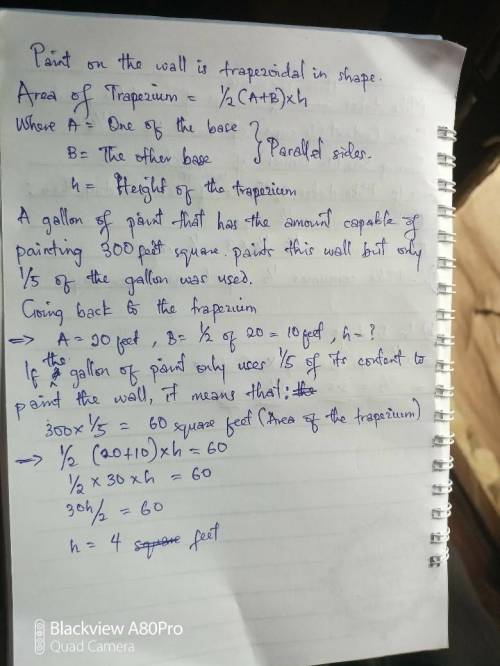 Paint on the wall is trapezoidal in shape.
Area of Trapezium = ½(A+B)×h
Where A = One of the base
B = The other base } Parallel sides.
h = Height of the trapezium
A gallon of paint that has the amount capable of
painting 300 feet square. paints this wall but only
1/5 of the gallon was used.
Going back to the trapezium
=> A = 20 feet, B = ½ of 20 = 10 feet, h = ?
If the gallon of paint only uses 1/5 of its content to
paint the wall, it means that:
300 × 1/5 = 60 square feet (Area of the trapezium)
=> ½ (20+10) × h = 60
½ × 30 × h = 60
30h/2 = 60
h = 4 square feet
Blackview A80Pro
Quad Camera